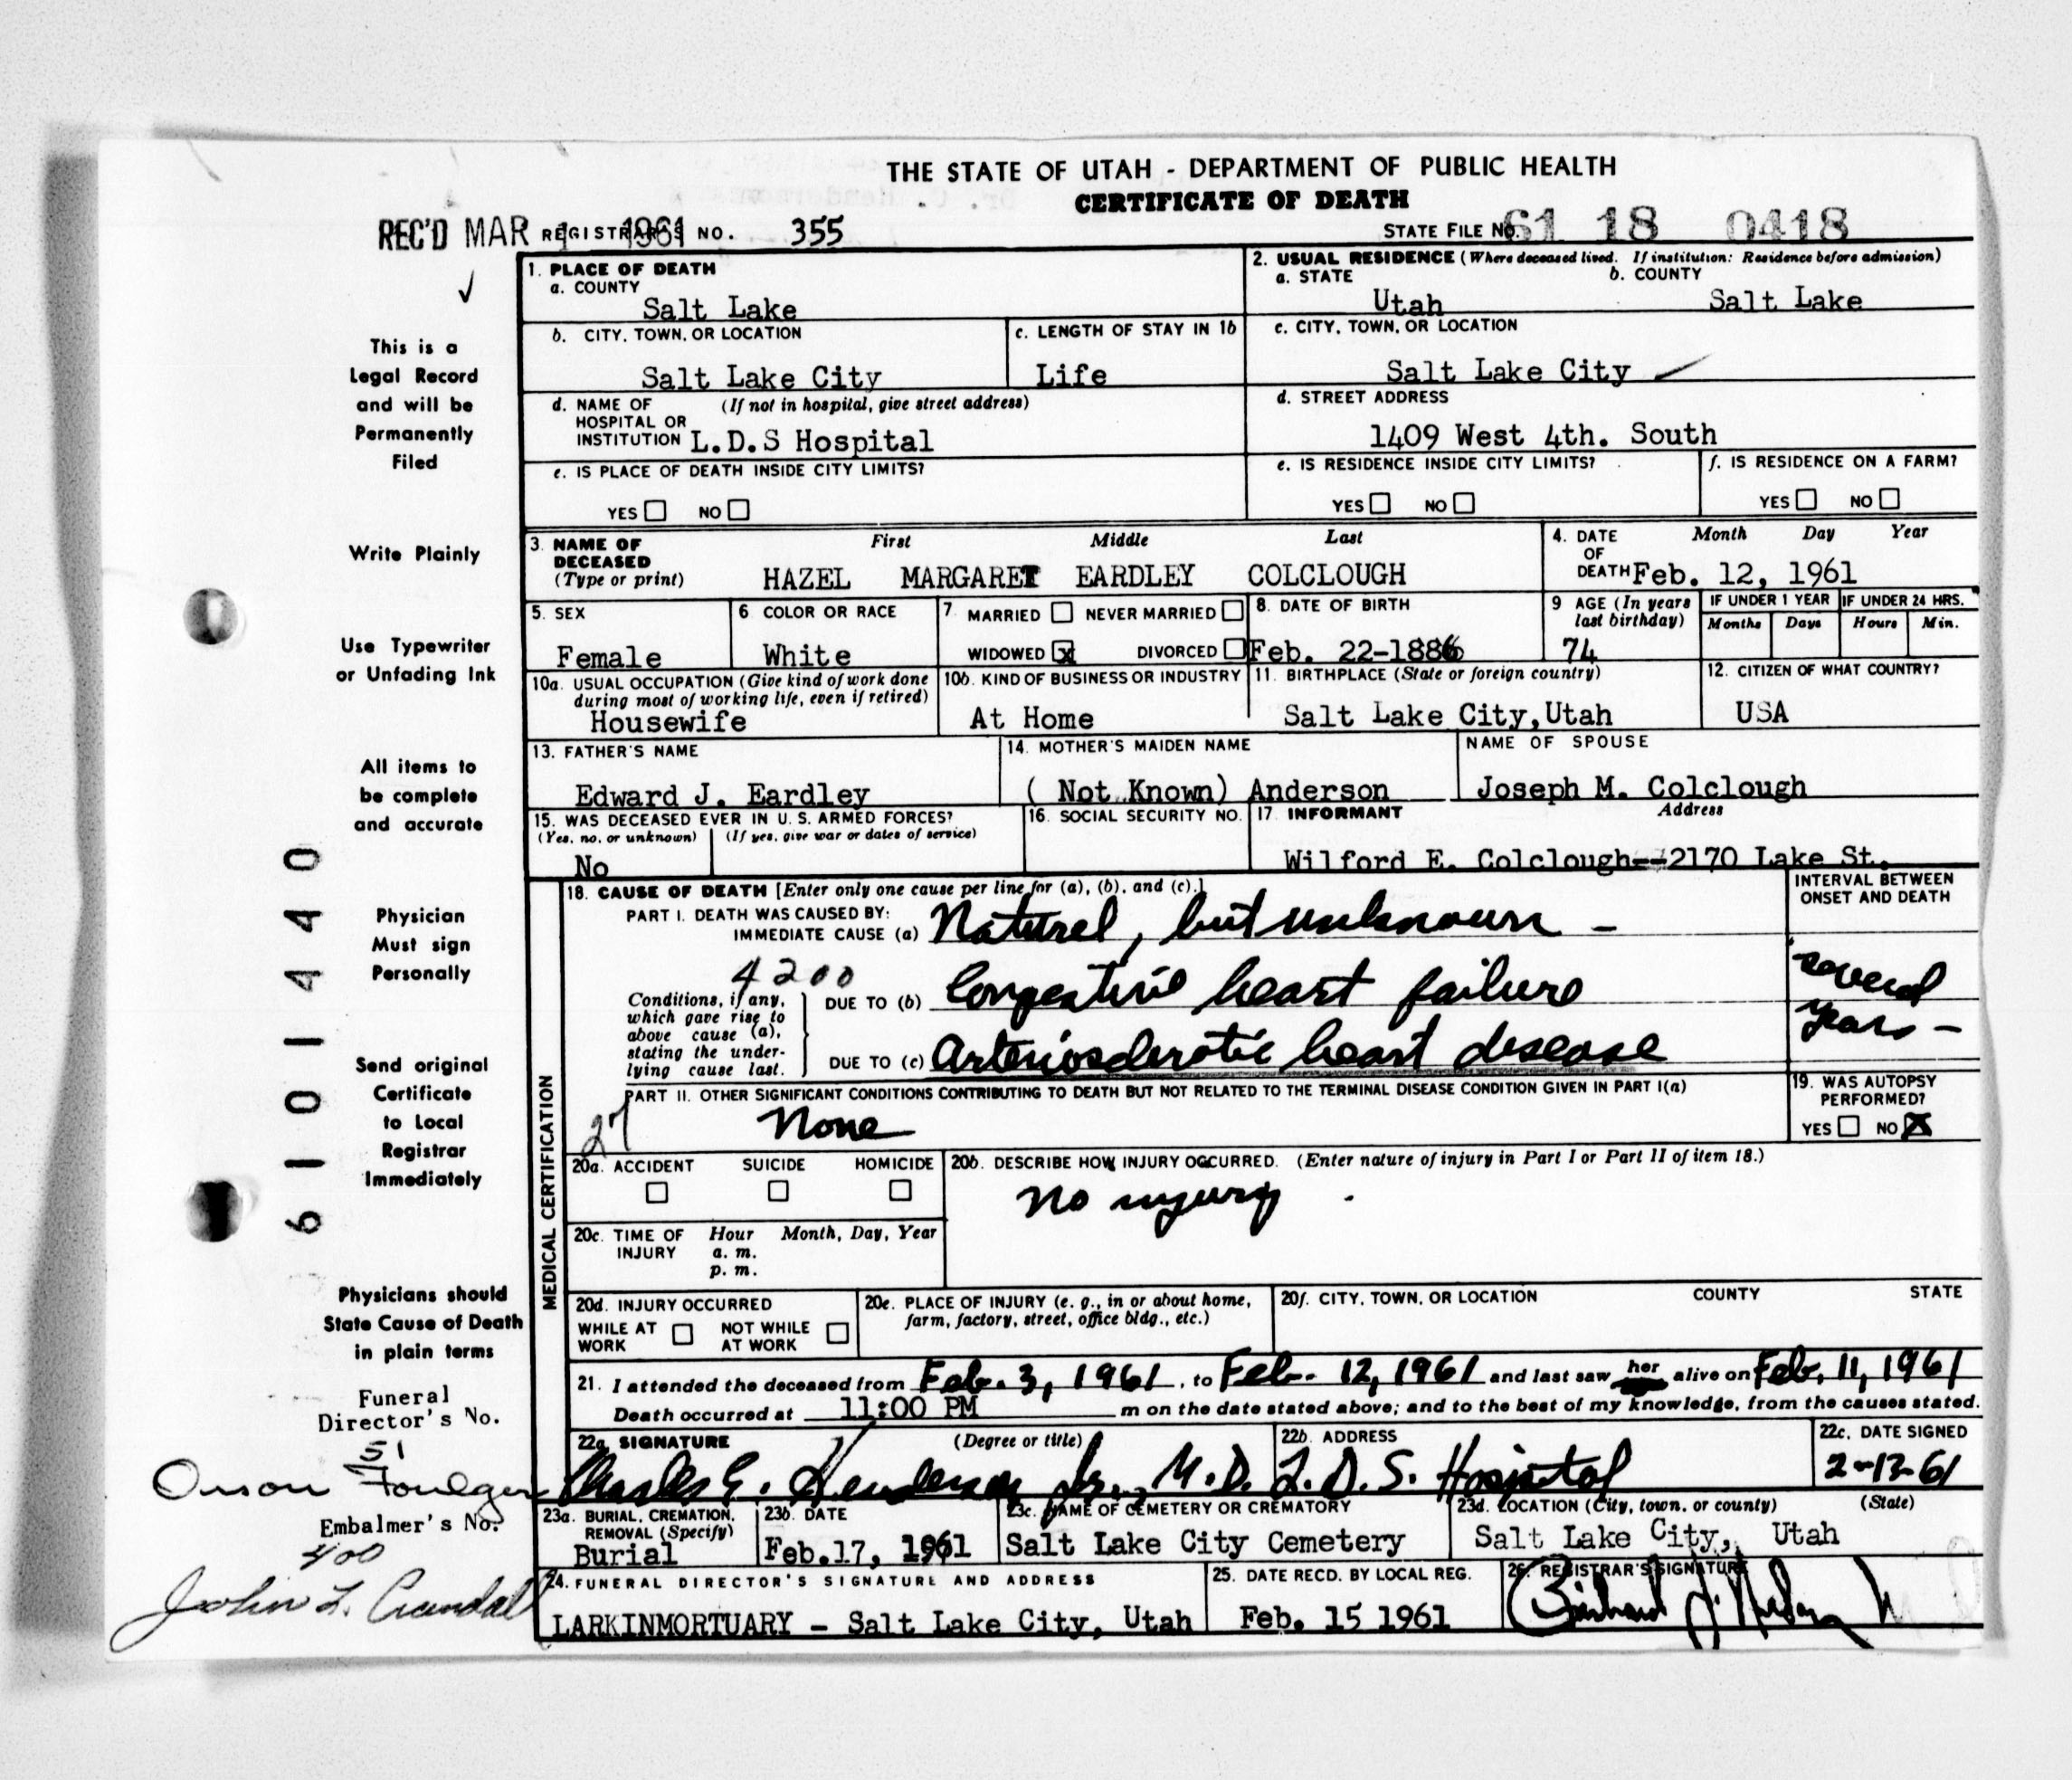 THE STATE OF UTAH - DEPARTMENT OF PUBLIC HEALTH
CERTIFICATE OF DEATH
REC'D MAR 1 1961 REGISTRAR'S NO. 355
STATE FILE NO. 61 18 0418
This is a
Legal Record
and will be
Permanently
Filed
Write Plainly
Use Typewriter
or Unfading Ink
All items to
be complete
and accurate
Physician
Must sign
Personally
Send original
Certificate
to Local
Registrar
Immediately
Physicians should
State Cause of Death
in plain terms
Funeral
Director's No.
51
Orson Foulger
Embalmer's No.
400
John L. Crandall
6101440
1. PLACE OF DEATH
a. COUNTY
Salt Lake
2. USUAL RESIDENCE (Where deceased lived. If institution: Residence before admission)
a. STATE b. COUNTY
Utah Salt Lake
b. CITY, TOWN, OR LOCATION
Salt Lake City
c. LENGTH OF STAY IN 1b
Life
c. CITY, TOWN, OR LOCATION
Salt Lake City
d. NAME OF (If not in hospital, give street address)
HOSPITAL OR
INSTITUTION L.D.S Hospital
d. STREET ADDRESS
1409 West 4th. South
e. IS PLACE OF DEATH INSIDE CITY LIMITS?
YES NO
e. IS RESIDENCE INSIDE CITY LIMITS?
YES NO
f. IS RESIDENCE ON A FARM?
YES NO
3. NAME OF First Middle Last
DECEASED
(Type or print) HAZEL MARGARET EARDLEY COLCLOUGH
4. DATE Month Day Year
OF
DEATH Feb. 12, 1961
5. SEX
Female
6 COLOR OR RACE
White
7. MARRIED NEVER MARRIED
WIDOWED X DIVORCED
8. DATE OF BIRTH
Feb. 22-1886
9 AGE (In years
last birthday)
74
IF UNDER 1 YEAR IF UNDER 24 HRS.
Months Days Hours Min.
10a. USUAL OCCUPATION (Give kind of work done
during most of working life, even if retired)
Housewife
10b. KIND OF BUSINESS OR INDUSTRY
At Home
11. BIRTHPLACE (State or foreign country)
Salt Lake City,Utah
12. CITIZEN OF WHAT COUNTRY?
USA
13. FATHER'S NAME
Edward J. Eardley
14. MOTHER'S MAIDEN NAME
( Not Known) Anderson
NAME OF SPOUSE
Joseph M. Colclough
15. WAS DECEASED EVER IN U. S. ARMED FORCES?
(Yes, no, or unknown) (If yes, give war or dates of service)
No
16. SOCIAL SECURITY NO.
17. INFORMANT Address
Wilford E. Colclough--2170 Lake St.
MEDICAL CERTIFICATION
18. CAUSE OF DEATH [Enter only one cause per line for (a), (b), and (c).]
PART I. DEATH WAS CAUSED BY:
IMMEDIATE CAUSE (a) Naturel, but unknown -
4200
Conditions, if any,
which gave rise to
above cause (a),
stating the under-
lying cause last.
DUE TO (b) Congestive heart failure
DUE TO (c) Arteriosclerotic heart disease
INTERVAL BETWEEN
ONSET AND DEATH
several
years -
PART II. OTHER SIGNIFICANT CONDITIONS CONTRIBUTING TO DEATH BUT NOT RELATED TO THE TERMINAL DISEASE CONDITION GIVEN IN PART I(a)
27 None
19. WAS AUTOPSY
PERFORMED?
YES NO X
20a. ACCIDENT SUICIDE HOMICIDE
20b. DESCRIBE HOW INJURY OCCURRED. (Enter nature of injury in Part I or Part II of item 18.)
No injury
20c. TIME OF Hour Month, Day, Year
INJURY a. m.
p. m.
20d. INJURY OCCURRED
WHILE AT NOT WHILE
WORK AT WORK
20e. PLACE OF INJURY (e. g., in or about home,
farm, factory, street, office bldg., etc.)
20f. CITY, TOWN, OR LOCATION COUNTY STATE
21. I attended the deceased from Feb. 3, 1961, to Feb. 12, 1961 and last saw her alive on Feb. 11, 1961
Death occurred at 11:00 PM m on the date stated above; and to the best of my knowledge, from the causes stated.
22a. SIGNATURE (Degree or title)
Charles G. Henderson Jr., M.D.
22b. ADDRESS
L.D.S. Hospital
22c. DATE SIGNED
2-13-61
23a. BURIAL, CREMATION,
REMOVAL (Specify)
Burial
23b. DATE
Feb.17, 1961
23c. NAME OF CEMETERY OR CREMATORY
Salt Lake City Cemetery
23d. LOCATION (City, town, or county) (State)
Salt Lake City, Utah
24. FUNERAL DIRECTOR'S SIGNATURE AND ADDRESS
LARKINMORTUARY - Salt Lake City, Utah
25. DATE RECD. BY LOCAL REG.
Feb. 15 1961
26. REGISTRAR'S SIGNATURE